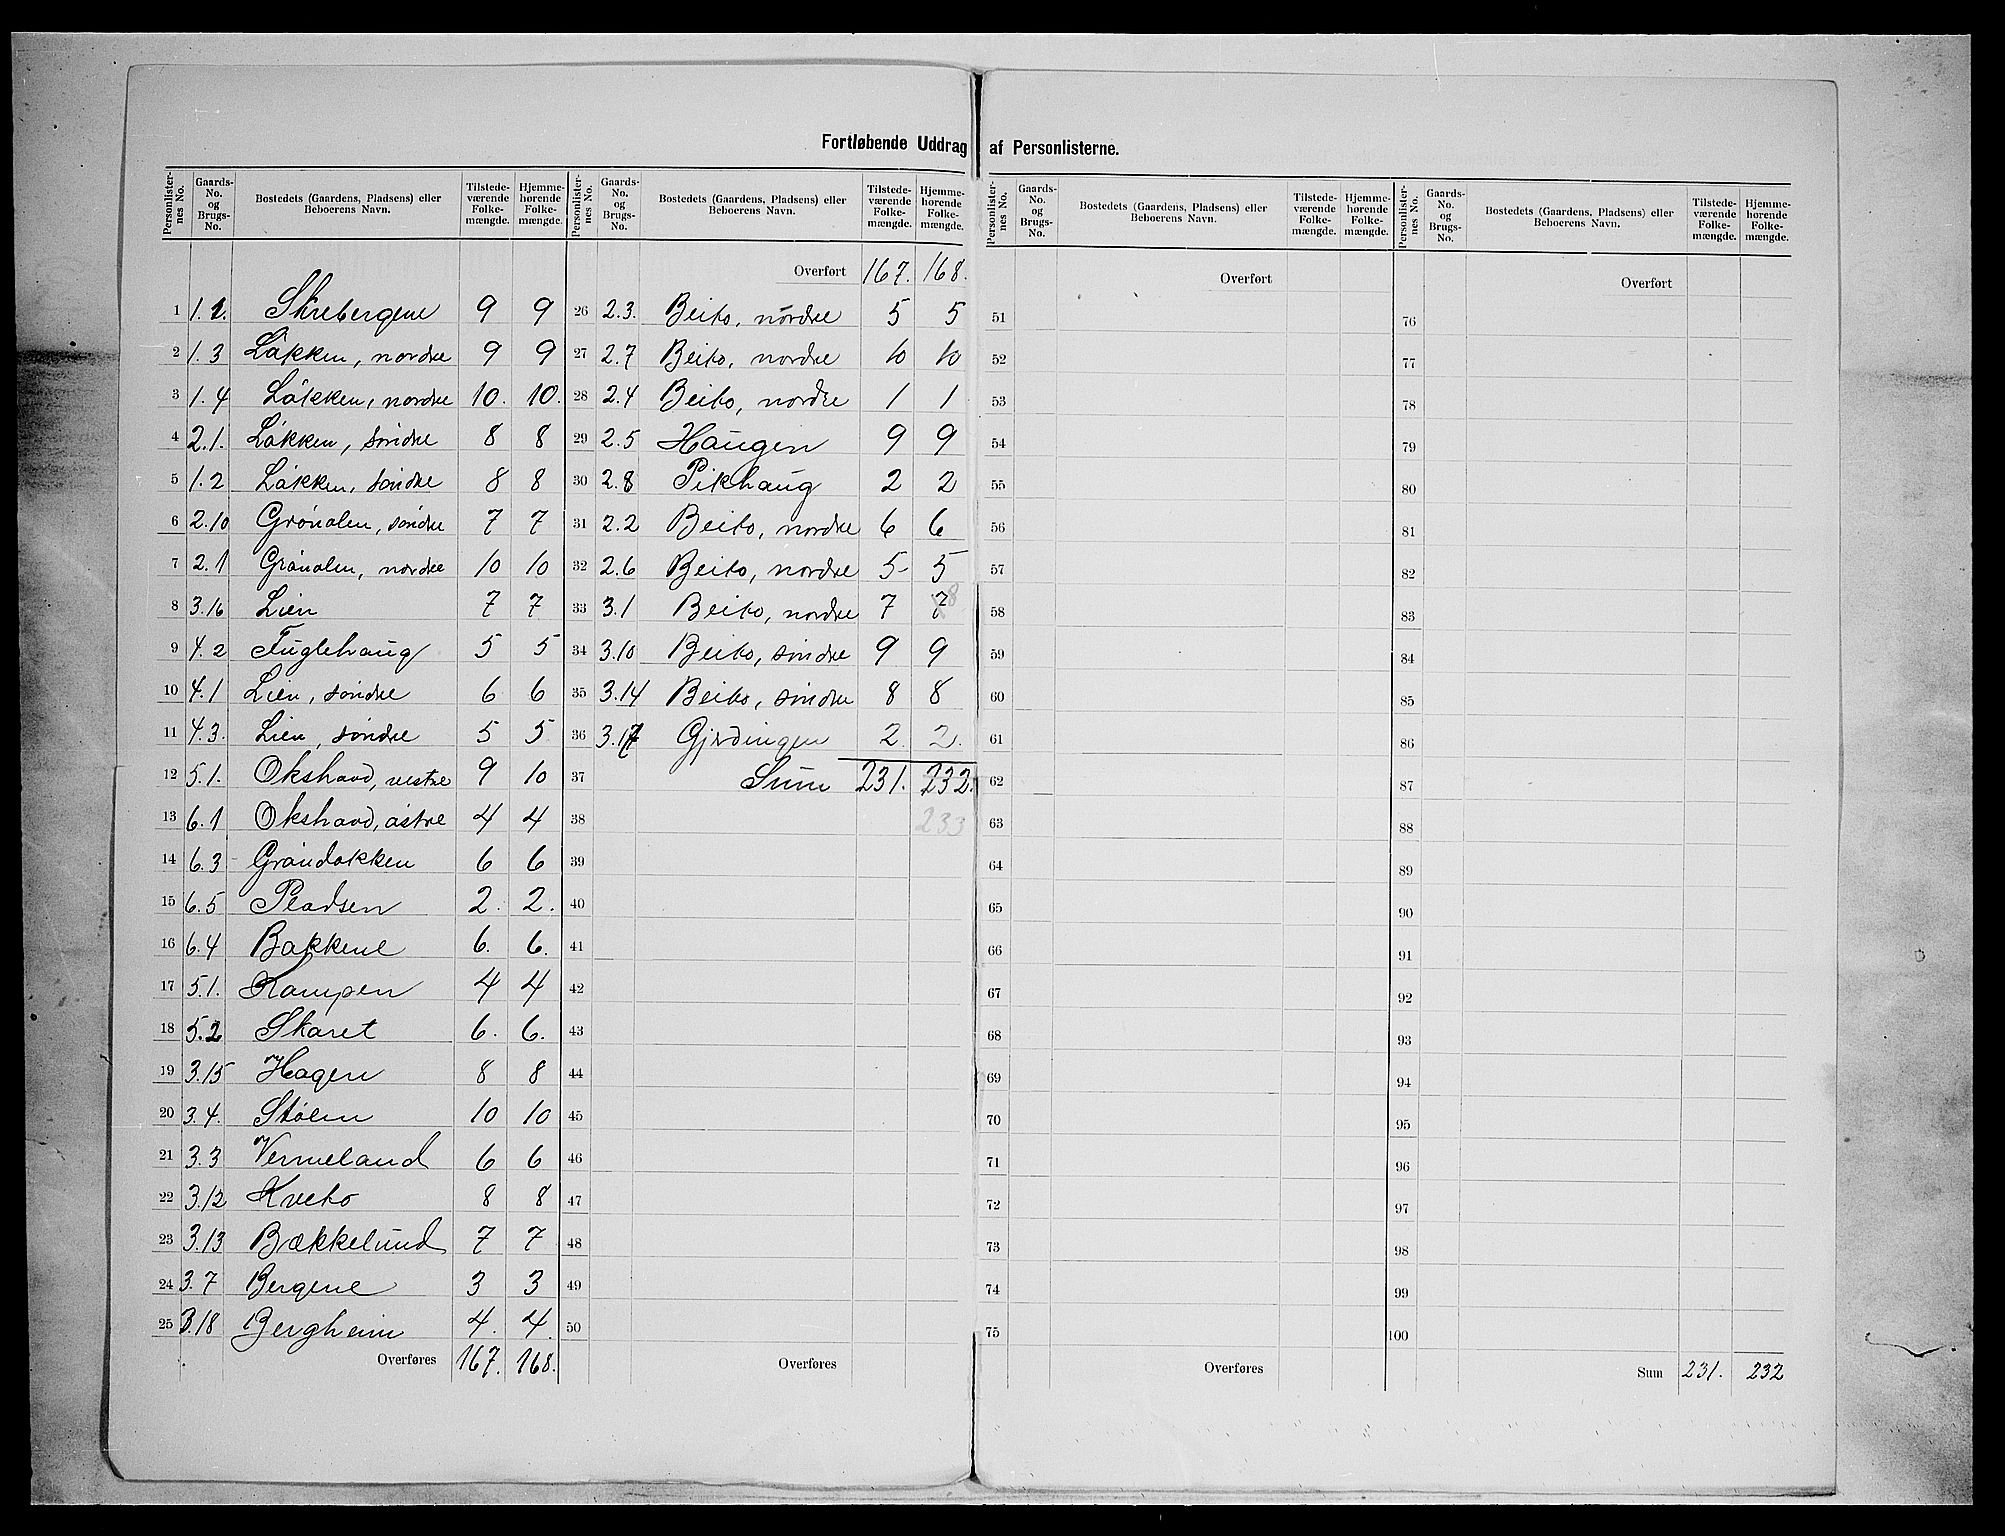 Fortløbende Uddrag af Personlisterne.
Personlister-nes No. | Gaards-No. og Brugs-No. | Bostedets (Gaardens, Pladsens) eller Beboerens Navn. | Tilstede-værende Folke-mængde. | Hjemme-hørende Folke-mængde.
1 1.1. Skrebergene 9 9
2 1.3 Løkken, nordre 9 9
3 1.4 Løkken, nordre 10. 10.
4 2.1. Løkken, søndre 8 8
5 1.2 Løkken, søndre 8 8
6 2.10 Grønolen, søndre 7 7
7 2.1 Grønolen, nordre 10 10
8 3.16 Lien 7 7
9 4.2 Fuglehaug 5 5
10 4.1 Lien, søndre 6 6
11 4.3. Lien, søndre 5 5
12 5.1. Okshovd, vestre 9 10
13 6.1 Okshovd, østre 4 4
14 6.3 Grøndokken 6 6
15 6.5 Pladsen 2. 2.
16 6.4 Bakkene 6. 6.
17 5.1. Kampen 4 4
18 5.2 Skaret 6. 6.
19 3.15 Hagen 8 8
20 3.4. Stølen 10 10
21 3.3 Vermeland 6 6
22 3.12 Kveto 8 8
23 3.13 Bækkelund 7 7
24 3.7 Bergene 3 3
25 3.18 Bergheim 4. 4.
Overføres 167. 168.
Personlister-nes No. | Gaards-No. og Brugs-No. | Bostedets (Gaardens, Pladsens) eller Beboerens Navn. | Tilstede-værende Folke-mængde. | Hjemme-hørende Folke-mængde.
Overført 167. 168.
26 2.3. Beito, nordre 5 5
27 2.7 Beito, nordre 10 10
28 2.4 Beito, nordre 1 1
29 2.5 Haugen 9 9
30 2.8 Pikhaug 2 2
31 2.2 Beito, nordre 6 6
32 2.6 Beito, nordre 5 5
33 3.1 Beito, nordre 7 7 8
34 3.10 Beito, søndre 9 9
35 3.14 Beito, søndre 8 8
36 3.17 Gjerdingen 2. 2.
37 Sum 231. 232.
38 233
39
40
41
42
43
44
45
46
47
48
49
50
Overføres
Personlister-nes No. | Gaards-No. og Brugs-No. | Bostedets (Gaardens, Pladsens) eller Beboerens Navn. | Tilstede-værende Folke-mængde. | Hjemme-hørende Folke-mængde.
Overført
51
52
53
54
55
56
57
58
59
60
61
62
63
64
65
66
67
68
69
70
71
72
73
74
75
Overføres
Personlister-nes No. | Gaards-No. og Brugs-No. | Bostedets (Gaardens, Pladsens) eller Beboerens Navn. | Tilstede-værende Folke-mængde. | Hjemme-hørende Folke-mængde.
Overført
76
77
78
79
80
81
82
83
84
85
86
87
88
89
90
91
92
93
94
95
96
97
98
99
100
Sum 231. 232